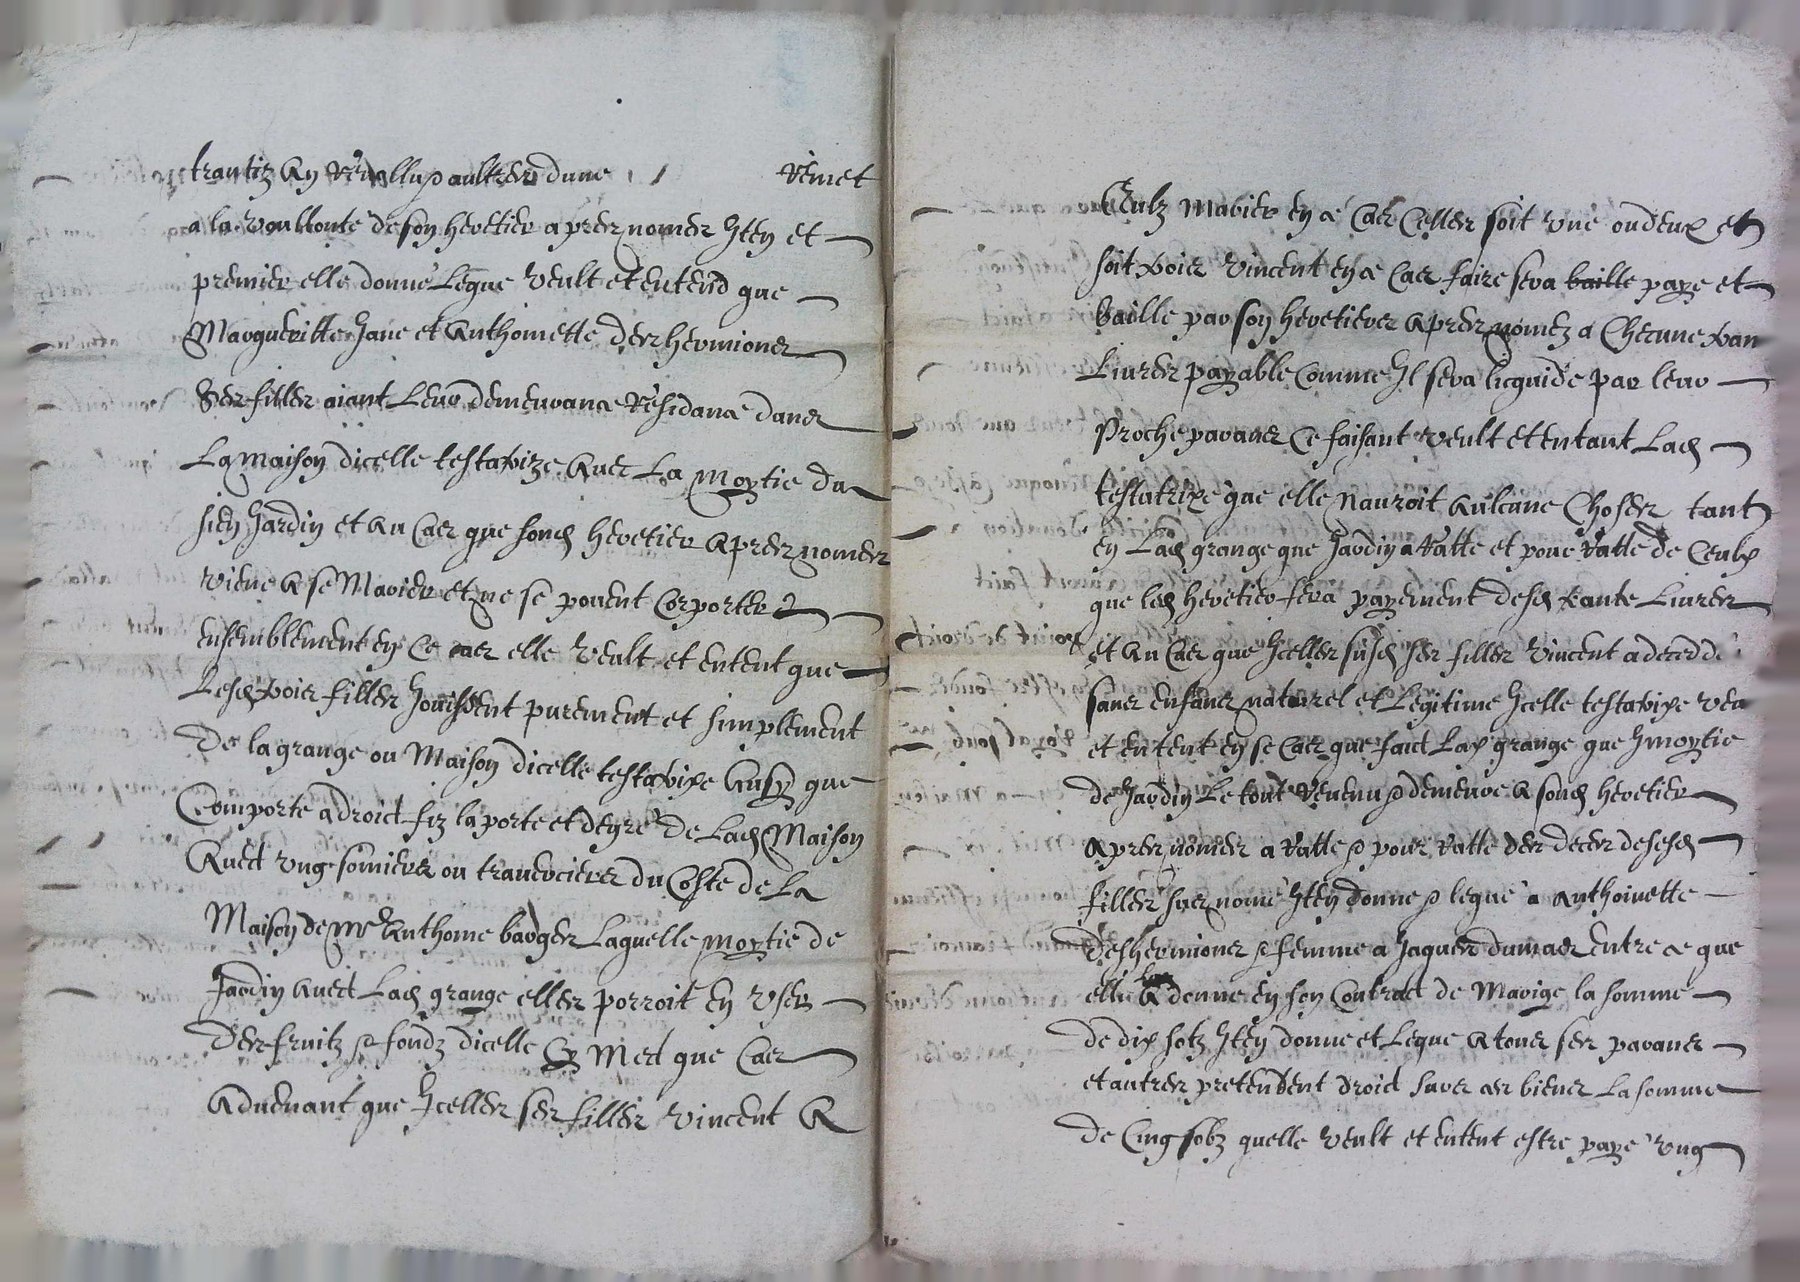 a la voullonte de son heretier apres nomer Iten et
premier elle donne legue veult et entend que
Margueritte Jane et Anthoinette des hermiones
ses filles aiant leur demeurance residance dans
La maison dicelle testatrize avec La moytie du
sien Jardin et au cas que sond heretier apres nomer
viene a se Marier et ne se povent corporter
ensemblement en ce cas elle veult et entent que
Lesd trois filles Jouissent purement et simplement
de la grange ou Maison dicelle testatrixe Ausy que
comporte a droict fiz la porte et degre de Lad Maison
Avect ung somiere ou traverciere du coste de La
Maison de mre Anthoine barger Laquelle moytie de
Jardin avect Lad grange elles porroit en user
des fruitz & fondz dicelle Et Mect que cas
Advenant que Icelles ses filles vincent A
Ceulz Marier en ce cas celles soit une ou deux et
soit trois vincent en ce cas faire sera baille paye et
baille par son heretieres apres nomez a Checune tran
Livres payable comme Il sera licquide par leur
Proche parans Ce faisant veult et entant Lad
testatrixe que elle Nauroit Aulcune Choses tant
en Lad grange que Jardin a Ratte et pour Ratte de Ceulx
que led heretier fera payement desd trante Livres
et au cas que Icelles susd ses filles vincent a decedde
sans enfans naturel et Legitime Icelle testatrixe veu
et entent en se cas que faict Lad grange que moytie
de Jardin Le tout Revenu & demeure a sond heretier
apres nomer a Ratte & pour Ratte des deces desesd
filles sus nome Iten donne & legue a Anthoinette
Deshermiones & femme a Jaques dumas entre ce que
elle A donne en son Contract de Mariage la somme
de dix solz Iten donne et Legue A tous ses parans
et autres pretendent droict sur ces biens La somme
de Cinq solz quelle veult et entent estre paye ung